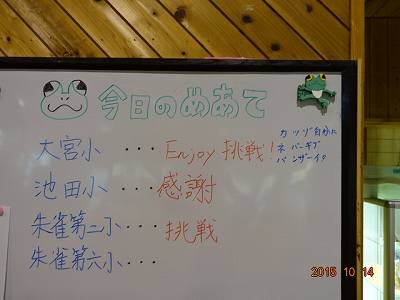 今日のめあて
大宮小 ・・・ Enjoy 挑戦!
カッゾ自分に
ネバーギブ
バンザーイ
池田小 ・・・ 感謝
朱雀第二小 ・・・ 挑戦
朱雀第六小 ・・・
2015 10 14